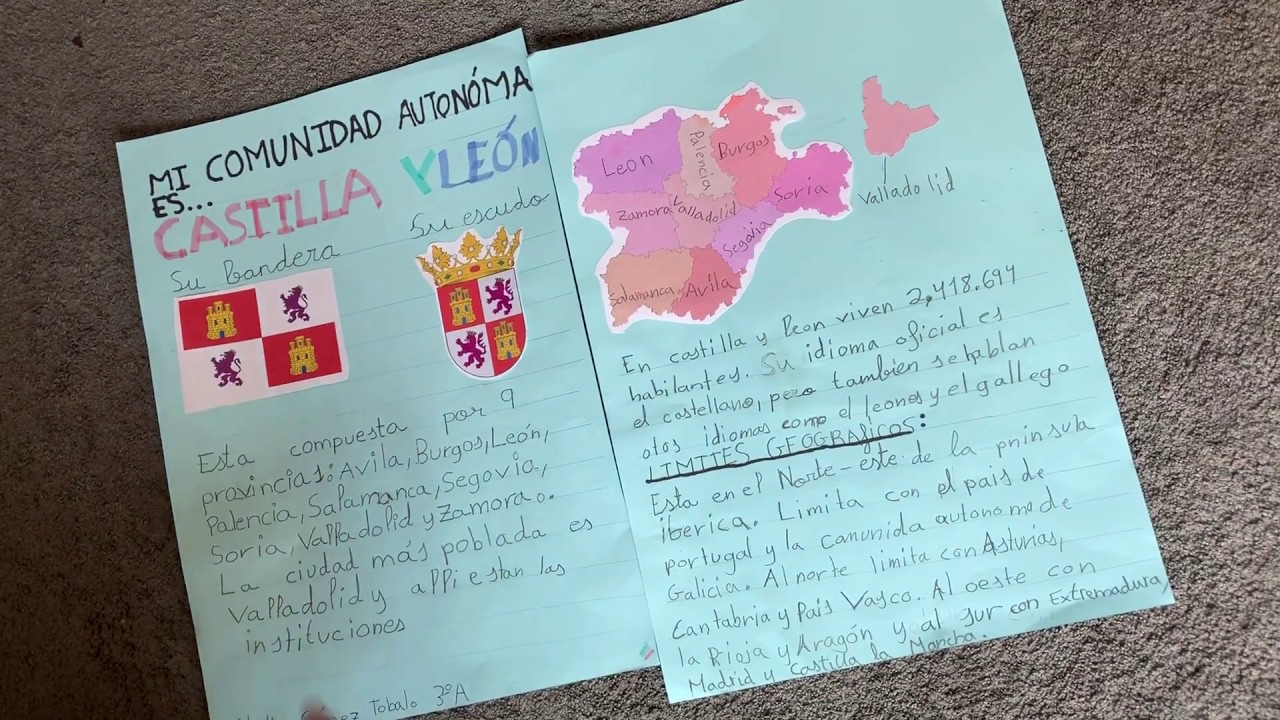 MI COMUNIDAD AUTONÓMA
ES...
CASTILLA Y LEÓN
Su bandera
Su escudo
Esta compuesta por 9
provincias: Avila, Burgos, León,
Palencia, Salamanca, Segovia,
Soria, Valladolid y Zamora.
La ciudad más poblada es
Valladolid y allí estan las
instituciones
Tobalo 3ºA
Leon
Palencia
Burgos
Soria
Zamora
Valladolid
Segovia
Salamanca
Avila
Valladolid
En castilla y leon viven 2,418.694
habilantes. Su idioma oficial es
el castellano, pero tambien se hablan
otos idiomas como el leones y el gallego
LIMITES GEOGRAFICOS:
Esta en el Norte-este de la pninsula
iberica. Limita con el pais de
portugal y la comunida autonoma de
Galicia. Al norte limita con Asturias,
Cantabria y País Vasco. Al oeste con
la Rioja y Aragón y al sur con Extremadura,
Madrid y Castilla la Mancha.